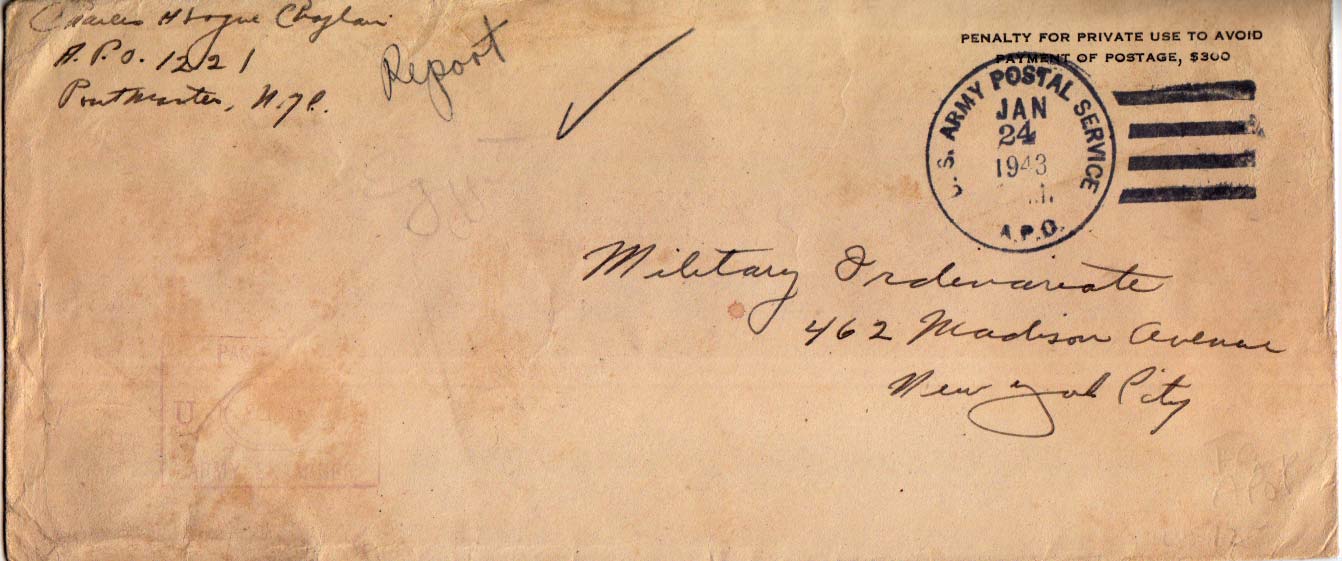 Charles H Chaplain
A.P.O. 1221
Postmaster, N.Y.C.
Report
PENALTY FOR PRIVATE USE TO AVOID
PAYMENT OF POSTAGE, $300
U. S. ARMY POSTAL SERVICE
JAN
24
1943
A.P.O.
Military Ordinariate
462 Madison Avenue
New York City
U